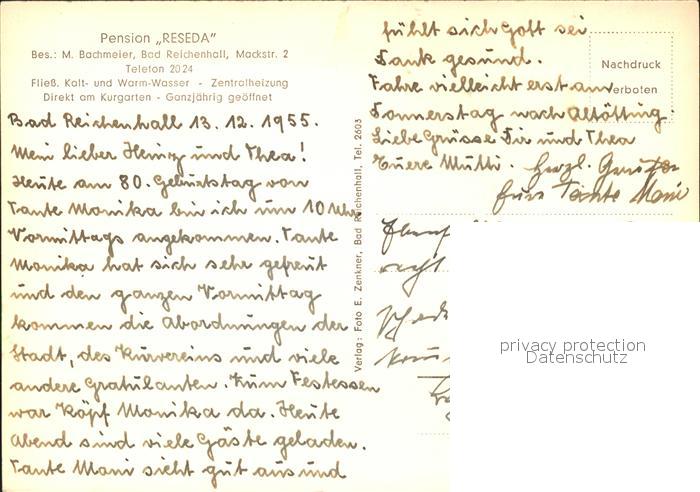 Pension „RESEDA"
Bes.: M. Bachmeier, Bad Reichenhall, Mackstr. 2
Telefon 2024
Fließ. Kalt- und Warm-Wasser - Zentralheizung
Direkt am Kurgarten - Ganzjährig geöffnet
Bad Reichenhall 13. 12. 1955.
Mein lieber Heinz und Thea!
Heute am 80. Geburtstag von
Tante Monika bin ich um 10 Uhr
Vormittags angekommen. Tante
Monika hat sich sehr gefreut
und den ganzen Vormittag
kommen die Abordnungen der
Stadt, des Kurvereins und viele
andere Gratulanten. Zum Festessen
war Monika da. Heute
Abend sind viele Gäste geladen.
Tante Moni sieht gut aus und
fühlt sich Gott sei
Dank gesund.
Fahre vielleicht erst am
Donnerstag nach Altötting.
Liebe Grüsse Dir und Thea
Euere Mutti. Herzl. Grüße
Eure Tante Moni
Nachdruck
verboten
Verlag: Foto E. Zenkner, Bad Reichenhall, Tel. 2603
privacy protection
Datenschutz